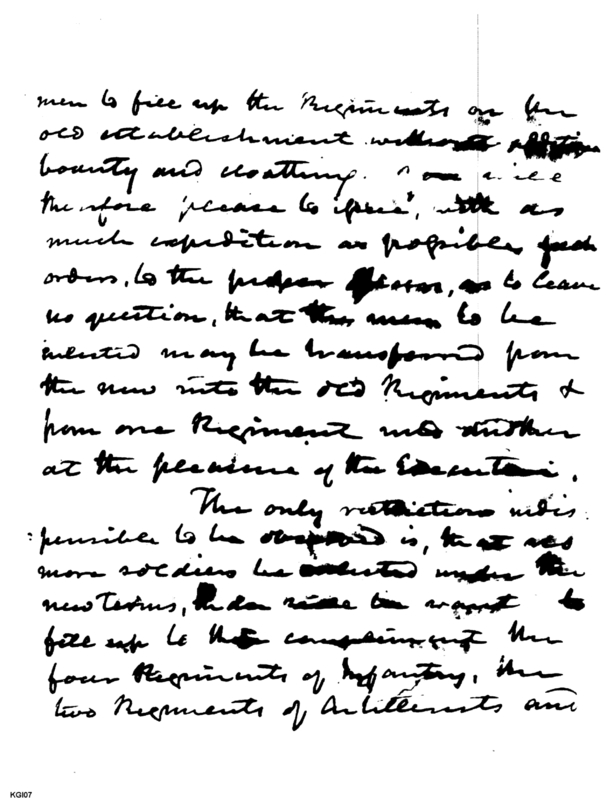 men to fill up the Regiments on the
old establishment without addition
bounty and cloathing. You will
therefore please to issue, with as
much expedition as possible, such
orders, to the proper, as to leave
no question, that the men to be
enlisted may be transferred from
the new into the old Regiments &
from one Regiment into another
at the pleasure of the Executive.
The only restriction indis
pensible to be observed is, that no
more soldiers be enlisted under the
new terms, than will be want to
fill up to their compliment the
four Regiments of Infantry, the
two Regiments of Artillerists and
KGI07